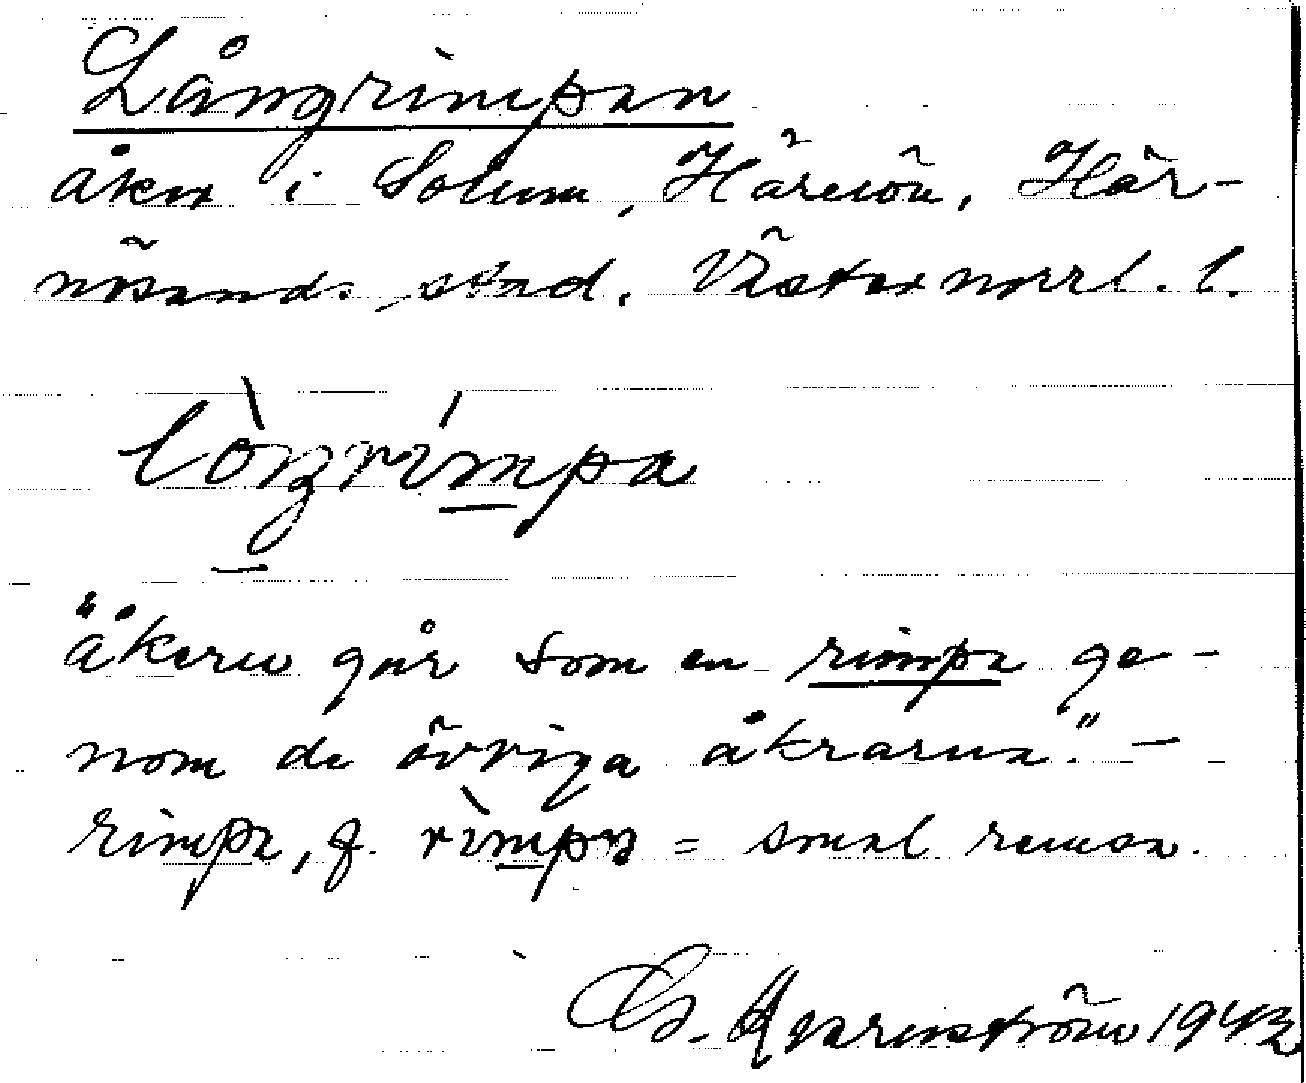 Långrimpan
åker i Solum, Härnön, Här-
nösands stad. Västernorrl. l.
lòŋrímpa
"åkern går som en rimpa ge-
nom de övriga åkrarna." –
rimpa, f. rìmpa = smal remsa.
G. Qvarnström 1943